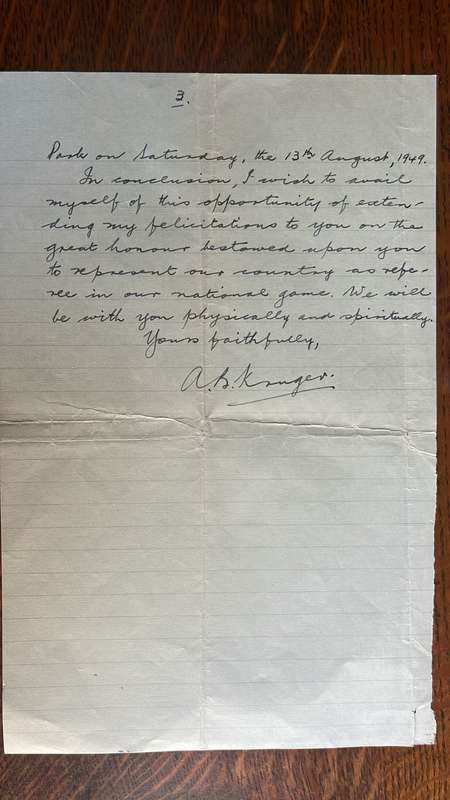 3.
Park on Saturday, the 13th August, 1949.
In conclusion, I wish to avail
myself of this opportunity of exten-
ding my felicitations to you on the
great honour bestowed upon you
to represent our country as refe-
ree in our national game. We will
be with you physically and spiritually.
Yours faithfully,
A.B. Kruger.